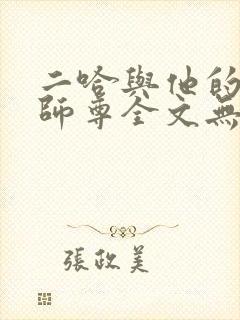 二哈與他的
師尊全文無
張政美